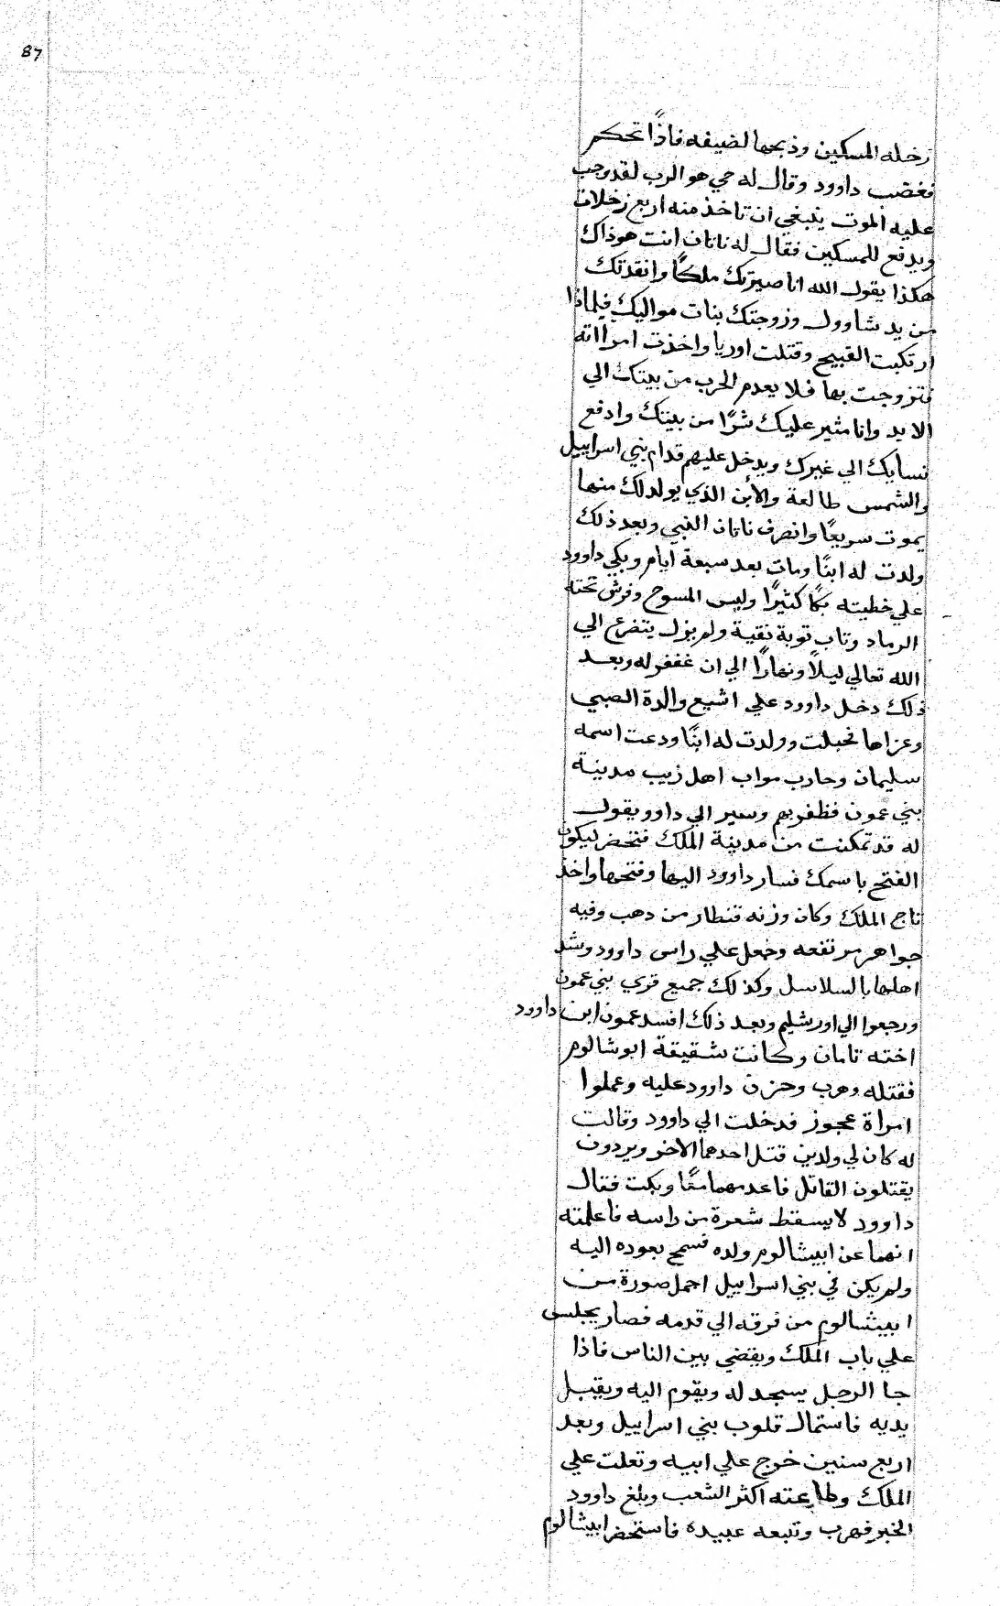 87
رخله المسكين وذبحها لضيفه فاذًا تحكم
فغضب داوود وقال له حي هو الرب لقد وجب
عليه الموت ينبغي ان تاخذ منه اربع زخلات
ويدفع للمسكين فقال له ناتان انت هو ذاك
هكذا يقول الله انا صيرتك ملكًا وانقذتك
من يد شاوول وزوجتك بنات مواليك فيلماذا
ارتكبت القبيح وقتلت اوريا واخذت امرااته
فتزوجت بها فلا يعدم الحرب من بيتك الي
الابد وانا مثير عليك شرًا من بيتك وادفع
نسايك الي غيرك ويدخل عليهم قدام بني اسراييل
والشمس طالعة والأبن الذي يولد لك منها
يموت سريعًا وانصرف ناتان النبي وبعد ذلك
ولدت له ابنًا ومات بعد سبعة ايام وبكي داوود
علي خطيته بكًا كثيرًا ولبس المسوح وفرش تحته
الرماد وتاب توبة نقية ولم يزل يتضرع الي
الله تعالي ليلاً ونهارًا الي ان غففر له وبعد
ذلك دخل داوود علي اشبع والدة الصبي
وعزاها فحبلت وولدت له ابنًا ودعت اسمه
سليمان وحارب مواب اهل زيب مدينة
بني عمون فظفر بهم وسير الي داوو يقول
له قد تمكنت من مدينة الملك فتحضر ليكون
الفتح باسمك فسار داوود اليها وفتحها واخذ
تاج الملك وكان وزنه قنطار من دهب وفيه
جواهر مرتفعه وجعل علي راس داوود وشد
اهلها بالسلاسل وكذلك جميع قري بني عمون
ورجعوا الي اورشليم وبعد ذلك افسد عمون ابن داوود
اخته تامان وكانت شقيقة ابوشالوم
فقتله وهرب وحزن داوود عليه وعملوا
امراة عجوز فدخلت الي داوود وقالت
له كان لي ولدين قتل احدهما الاخر ويردون
يقتلون القاتل فاعدمهما معًا وبكت فقال
داوود لا يسقط شعرة من راسه فاعلمته
انهما عن ابيشالوم ولده فسمح بعوده اليه
ولم يكن في بني اسراييل اجمل صورة من
ابيشالوم من فرقه الي قدمه فصار يجلس
علي باب الملك ويقضي بين الناس فاذا
جا الرجل يسجد له ويقوم اليه ويقبل
يديه فاستمال قلوب بني اسراييل وبعد
اربع سنين خرج علي ابيه وتعلت علي
الملك وطاعته اكثر الشعب وبلغ داوود
الخبر فهرب وتبعه عبيده فاستحضر ابيشالوم